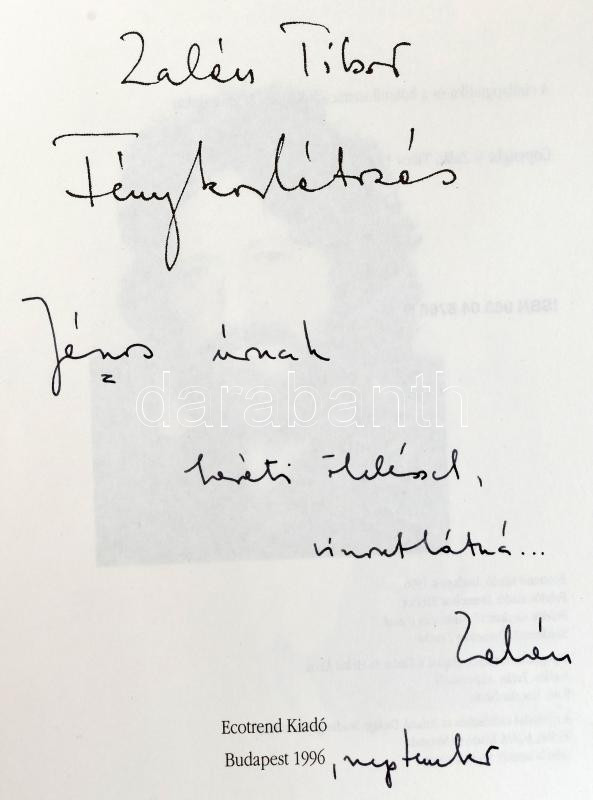 Zalán Tibor
Fénykorlátozás
János úrnak
baráti öleléssel,
viszontlátná...
Zalán
Ecotrend Kiadó
Budapest 1996, szeptember
darabanth